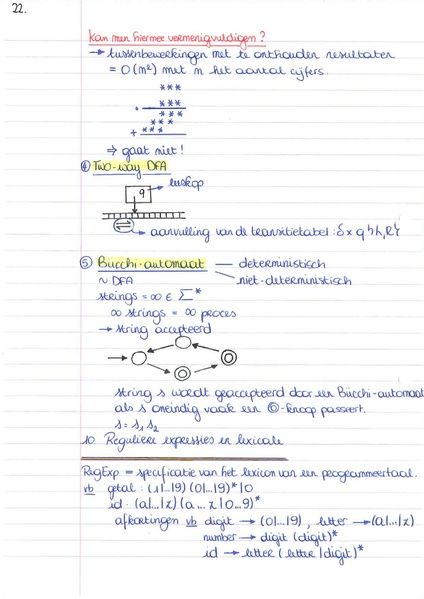 22.
kan men hiermee vermenigvuldigen?
→ tussenbewerkingen met te onthouden resultaten
= O(n²) met n het aantal cijfers.
***
. ***
***
***
+ ***
⇒ gaat niet!
④ Two-way DFA
q leeskop
→ aanvulling van de transitietabel: δ x q {L,R}
⑤ Bücchi-automaat → deterministisch
→ niet-deterministisch
~ DFA
strings = ∞ ∈ Σ*
∞ strings = ∞ proces
→ string accepteerd
string s wordt geaccepteerd door een Bücchi-automaat
als s oneindig vaak een ◎-knoop passeert.
s = s₁ s₂
10. Reguliere expressies en lexicale
RegExp = specificatie van het lexicon van een programmeertaal.
vb getal: (1|...|9) (0|...|9)* | 0
id: (a|...|z) (a...z | 0...9)*
afkortingen vb digit → (0|...|9), letter → (a|...|z)
number → digit (digit)*
id → letter (letter | digit)*